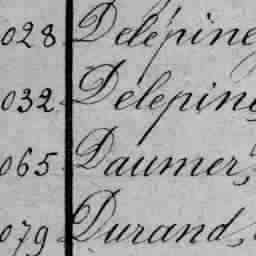 028 Delépine,
032 Delepine
065 Daumer,
079 Durand,